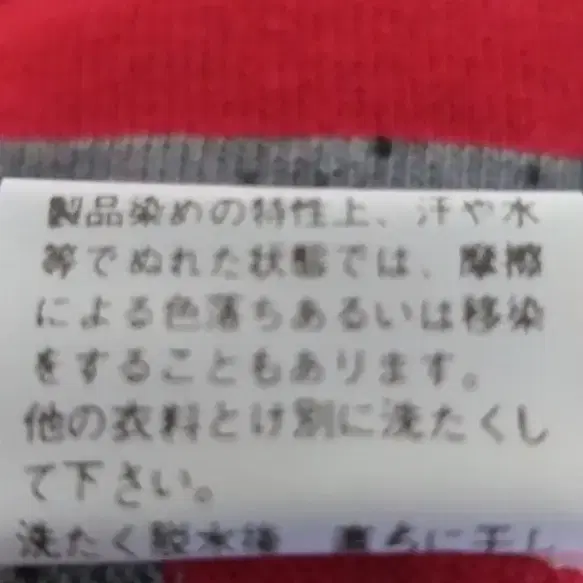 製品染めの特性上、汗や水
等でぬれた状態では、摩擦
による色落ちあるいは移染
をすることもあります。
他の衣料とは別に洗たくし
て下さい。
洗たく脱水後 直ちに干し